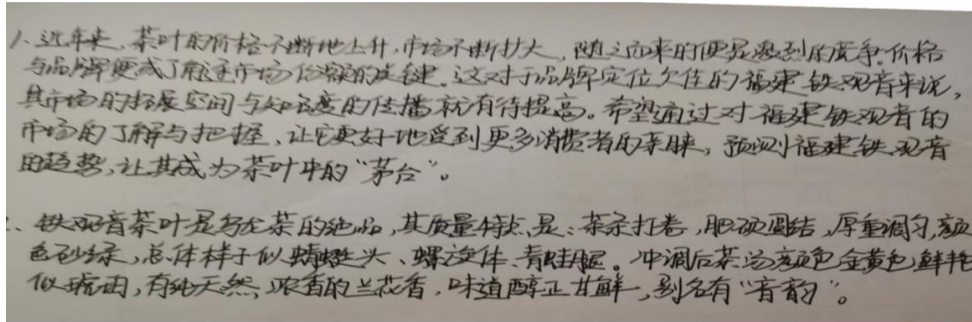 1、近年来,茶叶的价格不断地上升,市场不断扩大,随之而来的便是激烈的竞争。价格
与品牌便成了能主市场份额的关键。这对于品牌定位欠佳的福建铁观音来说,
其市场的拓展空间与知名度的传播就有待提高。希望通过对福建铁观音的
市场的了解与把握,让它更好地受到更多消费者的亲睐,预测福建铁观音
的趋势,让其成为茶叶中的“茅台”。
2、铁观音茶叶是乌龙茶的绝品,其质量特点是:茶条打卷,肥硕圆结,厚重调匀,颜
色砂绿,总体样子似蜻蜓头、螺旋体、青蛙腿。冲调后茶汤颜色金黄色鲜艳
似琥珀,有纯天然浓香的兰花香,味道醇正甘鲜,别名有“音韵”。